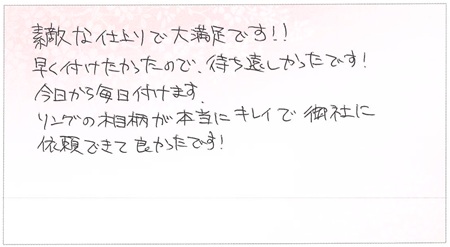 素敵な仕上りで大満足です!!
早く付けたかったので、待ち遠しかったです!
今日から毎日付けます.
リングの相柄が本当にキレイで御社に
依頼できて良かったです!